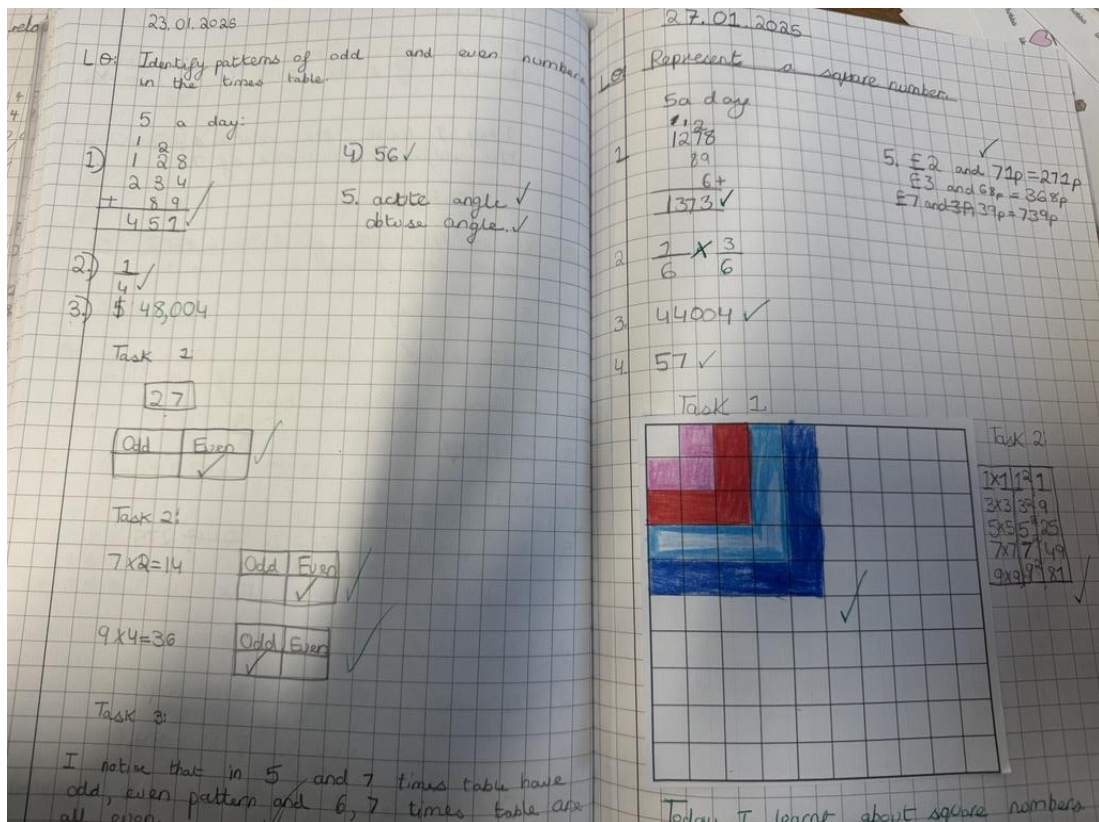 23.01.2025
LO: Identify patterns of odd and even numbers
in the times table.
5 a day:
1 2
1) 1 2 8
2 3 4
+ 8 9
4 5 1
2) 1/4
3) $ 48,004
4) 56
5. acute angle
obtuse angle.
Task 1
27
Odd Even
Task 2:
7x2=14
Odd Even
9x4=36
Odd Even
Task 3:
I notice that in 5 and 7 times table have
odd, even pattern and 6, 7 times table are
all even.
27.01.2025
LO Represent a square number.
5a day
1 1278
89
6+
1373
2 1/6 3/6
3. 44004
4. 57
5. £2 and 71p = 271p
£3 and 68p = 368p
£7 and 39p = 739p
Task 1
Task 2:
1x1 1² 1
3x3 3² 9
5x5 5² 25
7x7 7² 49
9x9 9² 81
Today I learnt about square numbers